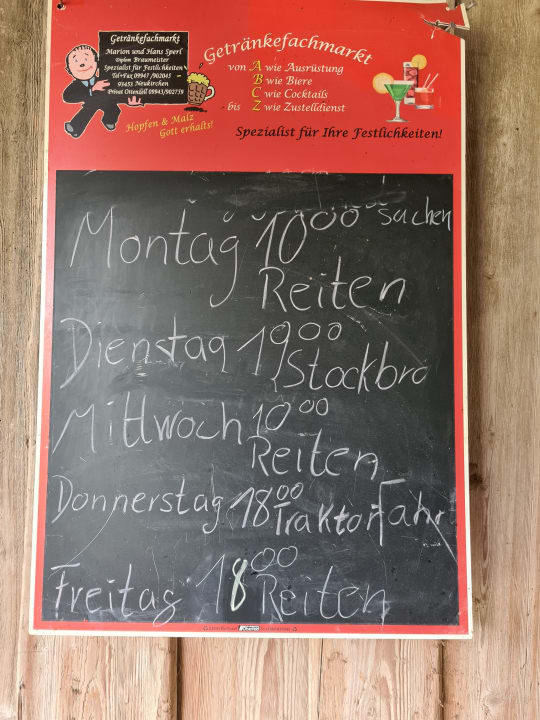 Getränkefachmarkt
Marion und Hans Sperl
Diplom Braumeister
Spezialist für Festlichkeiten
Tel+Fax 09947 /902045
93453 Neukirchen
Privat Ottenzell 09943/902739
Hopfen & Malz
Gott erhalts!
Getränkefachmarkt
von A wie Ausrüstung
B wie Biere
C wie Cocktails
bis Z wie Zustelldienst
Spezialist für Ihre Festlichkeiten!
Montag 10 00 suchen
Reiten
Dienstag 19 00
Stockbro
Mittwoch 10 00
Reiten
Donnerstag 18 00
Traktorfahr
Freitag 18 00
Reiten